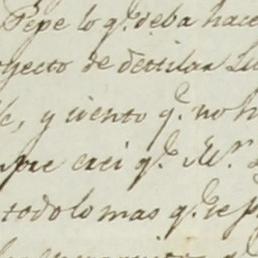 Pepe lo q.e deba hace
oyecto de destilar
, y siento q.e no h
pre crei q.e M.r
todo lo mas q.e se p